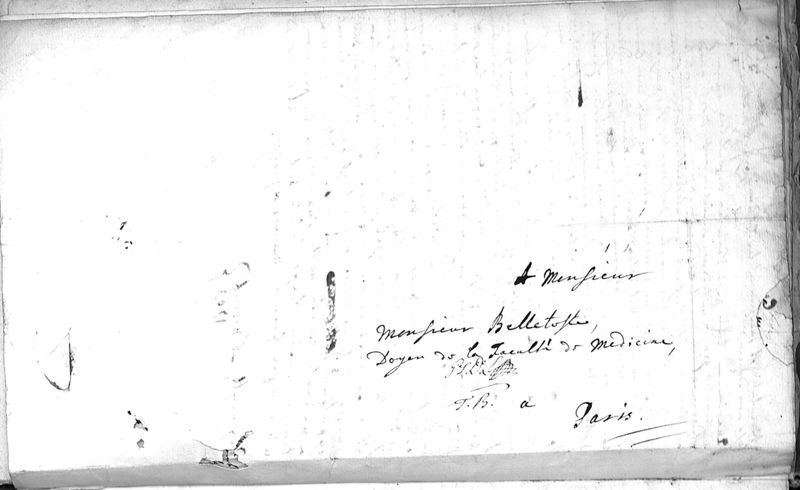 A Monsieur
Monsieur Belleteste,
Doyen de la Faculté de Medicine,
T.B. a
Paris.